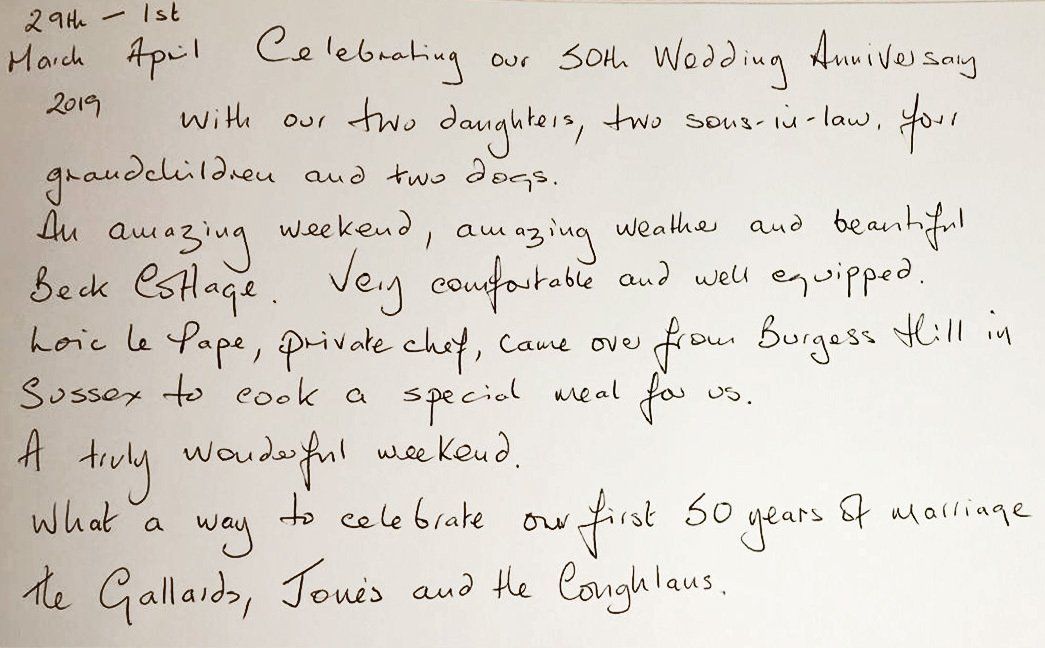 29th - 1st
March April Celebrating our 50th Wedding Anniversary
2019 with our two daughters, two sons-in-law, four
grandchildren and two dogs.
An amazing weekend, amazing weather and beautiful
Beck Cottage. Very comfortable and well equipped.
Loic le Pape, private chef, came over from Burgess Hill in
Sussex to cook a special meal for us.
A truly wonderful weekend.
What a way to celebrate our first 50 years of marriage
The Gallards, Jones and the Coughlans.